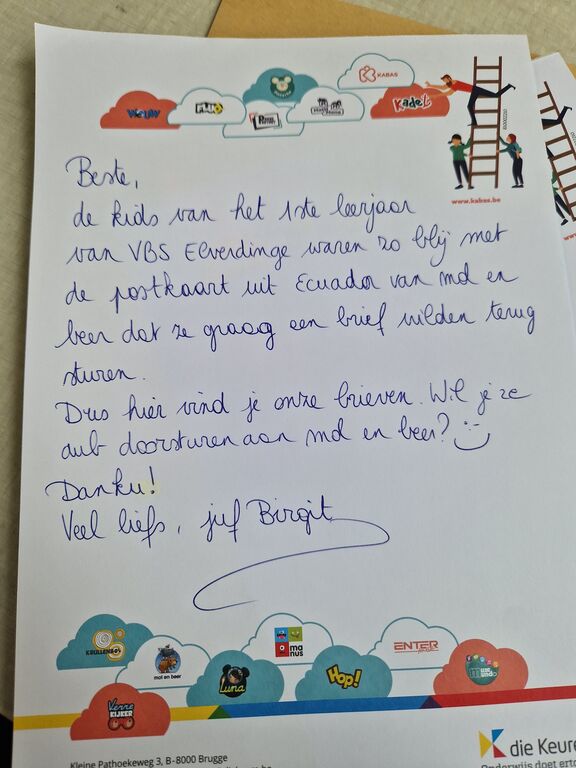 KABAS
WOUW
PLUK
Kadet
www.kabas.be
Beste,
de kids van het 1ste leerjaar
van VBS Elverdinge waren zo blij met
de postkaart uit Ecuador van mol en
beer dat ze graag een brief wilden terug
sturen.
Dus hier vind je onze brieven. Wil je ze
aub doorsturen aan mol en beer? :-)
Danku!
Veel liefs, juf Birgit
KRULLENBOL
mol en beer
Luna
manus
Hop!
ENTER
Verre
KIJKER
die Keure
Kleine Pathoekeweg 3, B-8000 Brugge